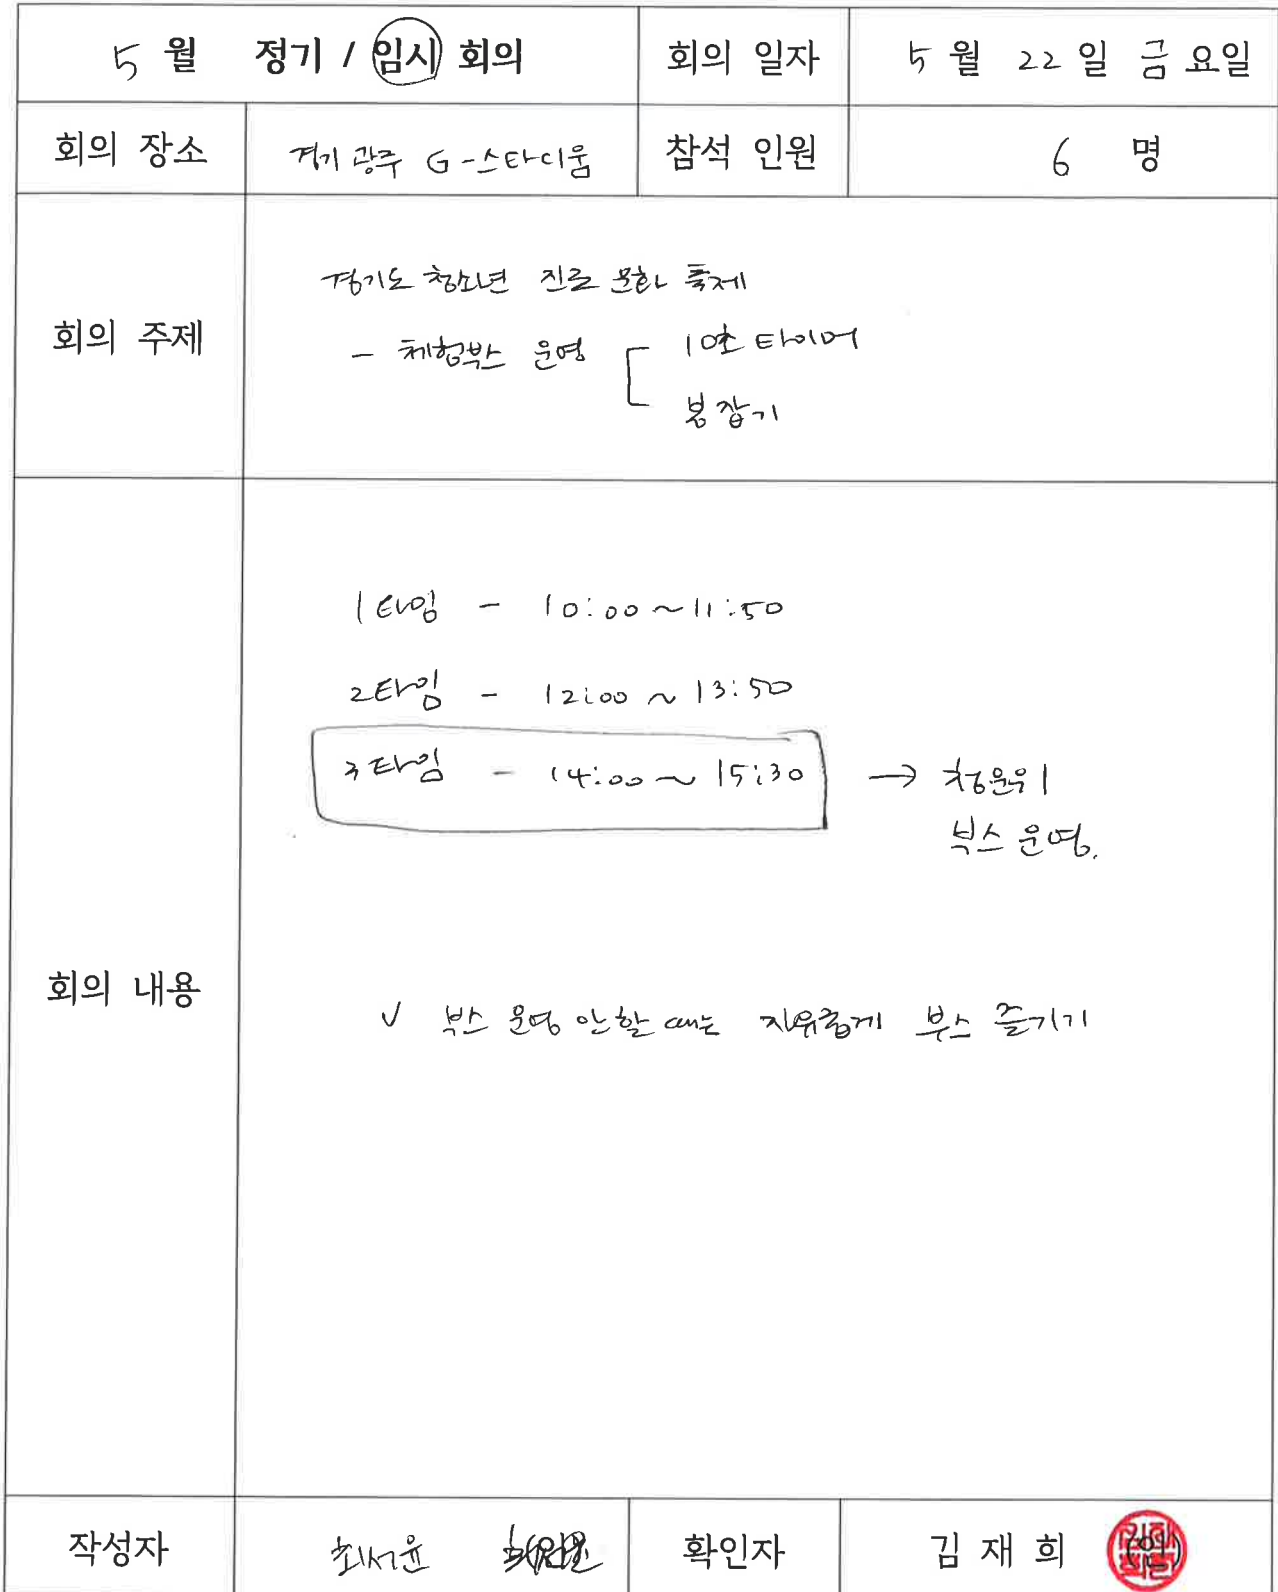 5 월 정기 / 임시 회의 회의 일자 5 월 22 일 금 요일
회의 장소 경기 광주 G-스타디움 참석 인원 6 명
회의 주제
경기도 청소년 진로 문화 축제
- 체험부스 운영 10초 타이머
봉잡기
회의 내용
1타임 - 10:00 ~ 11:50
2타임 - 12:00 ~ 13:50
3타임 - 14:00 ~ 15:30 → 청운위
부스 운영.
✓ 부스 운영 안할 때는 자유롭게 부스 즐기기
작성자 최서윤 확인자 김 재 희 (인)